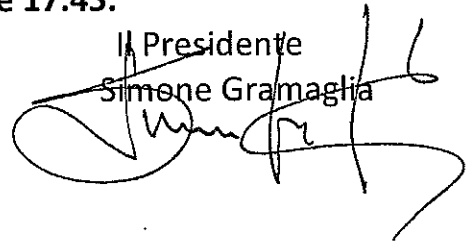 e 17.45.
Il Presidente
Simone Gramaglia